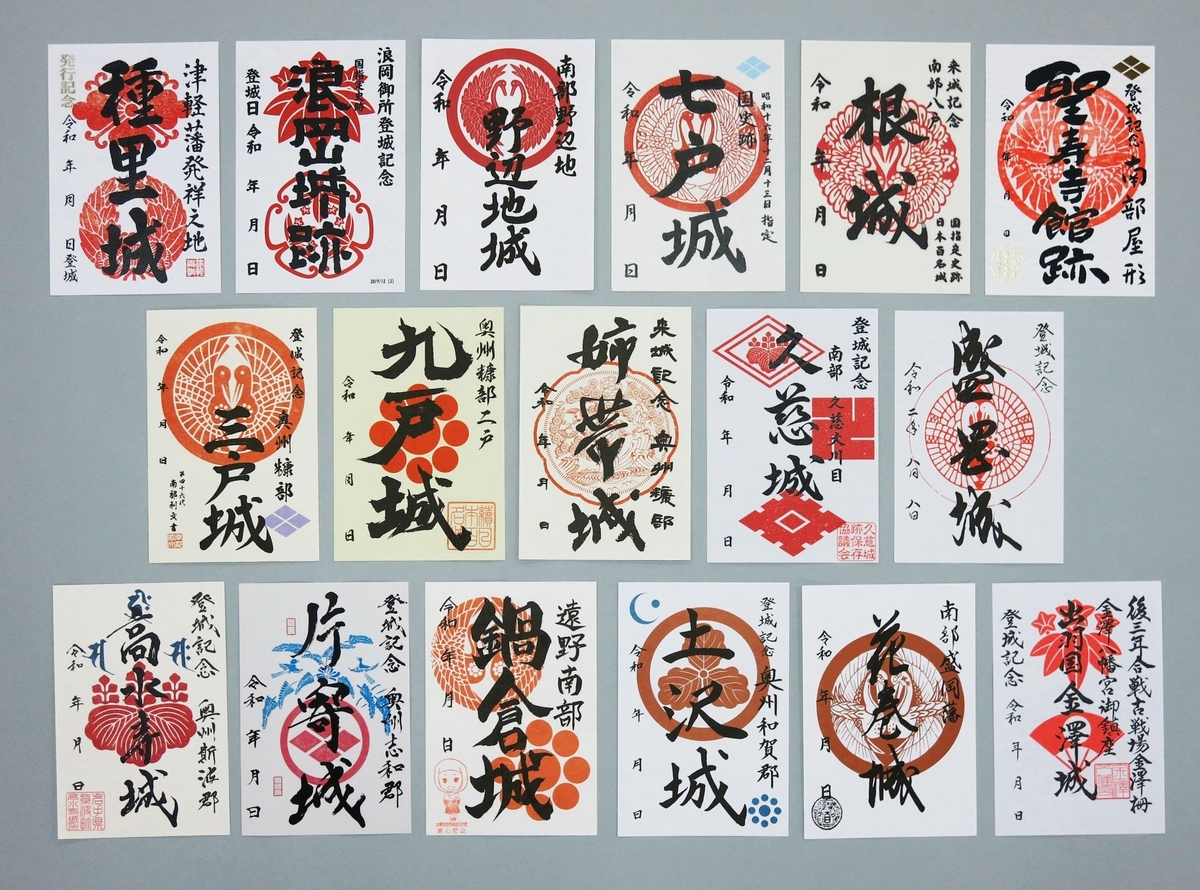 津軽藩発祥之地
種里城
発行記念
令和 年 月 日登城
浪岡御所登城記念
国指定史跡
浪岡城跡
登城日 令和 年 月 日
2019/12 (3)
南部野辺地
野辺地城
令和 年 月 日
昭和十六年十二月十三日指定
国史跡
七戸城
令和 年 月 日
来城記念
南部八戸
国指定史跡
日本百名城
根城
令和 年 月 日
登城記念 南部屋形
聖寿寺館跡
令和 年 月 日
登城記念 奥州糠部
三戸城
第四十六代
南部利文書
令和 年 月 日
奥州糠部二戸
九戸城
令和 年 月 日
来城記念 奥州糠部
姉帯城
令和 年 月 日
登城記念
南部 久慈大川目
久慈城
令和 年 月 日
久慈城
跡保存
協議会
登城記念
盛岡城
令和二年 八月 八日
登城記念 奥州斯波郡
高水寺城
令和 年 月 日
登城記念 奥州志和郡
片寄城
令和 年 月 日
遠野南部
鍋倉城
令和 年 月 日
登城記念 奥州和賀郡
土沢城
令和 年 月 日
南部盛岡藩
花巻城
令和 年 月 日
後三年合戦古戦場金澤柵
金澤八幡宮御鎮座
出羽国金澤城
登城記念 令和 年 月 日